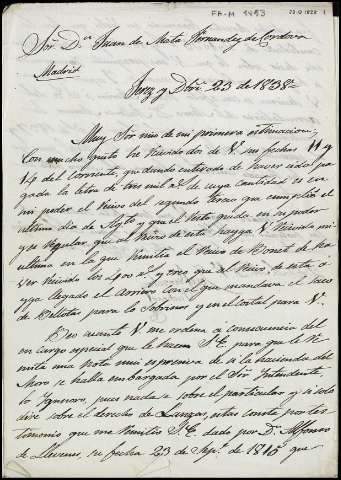 FF-M 1493
23-D 1838
1
Sor. Dn. Juan de Mata Fernandez de Cordova
Madrid
Jerez y Dbre. 23 de 1838.
Muy Sor mio de mi primera estimacion;
Con mucho gusto he recivido dos de V. sus fechas 11 y
14 del corriente, quedando enterado de haver sido pa
gada la letra de tres mil de cuya cantidad es en
mi poder el recivo del segundo tercio que cumplió el
ultimo dia de Agto. y que el resto queda en su poder
y es regular que al recivo de esta haya V. recivido mi
ultima en la que remitia el recivo de Bonet de ha
ver recivido los 400 y creo que al recivo de esta ha
iga llegado el Arriero con el que mandava el saco
de Bellotas para los Sobrinos y en el costal para V.
Veo cuanto V me ordena a consecuencia del
encargo especial que le hacen para que le re
mita una nota mui expresiva de si la hacienda del
Moro se halla embargada por el Sor Intendente
lo Ygnoro, pues nada se sobre el particular y si solo
dire sobre el derecho de Lanzas, estas consta por tes
timonio que me remitio S.E. dado por Dn. Alfonso
de Llerenes, su fecha 23 de Sepe. de 1815 que